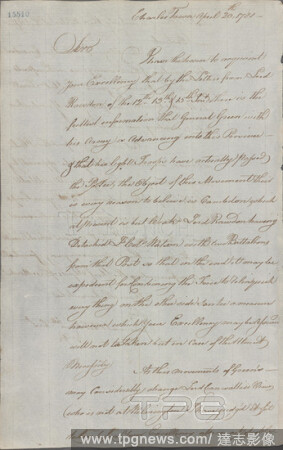 15513
Charles Town April 20th 1781
Sir
I have the honor to represent
your Excellency that by the Letters from Lord
Rawdon of the 12th 13th & 15th Inst there is the
fullest information that General Green with
his Army is Advancing into this Province
& that his Light Troops have actually passed
the the Object of this Movement there
is every reason to believe is Camden, which
at present is but Weak, Lord Rawdon having
Detached Lt Col Watson with two Battalions
from that Post so that in the end it may be
expedient for the Troops
any thing on this side a measure
however which your Excellency may be
will not be taken but in case of the utmost
Necessity
As this movement of Green's
may considerably change Lord Cornwallis's Views
who is not at the
TPG
www.tpgnews.com / 達志影像